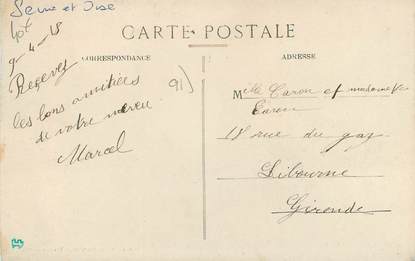 Seine et Oise
CARTE POSTALE
CORRESPONDANCE
ADRESSE
9-4-18
Recevez
les bons amitiées
de votre neveu
Marcel
91)
Melle Caron et madame Ve
Caron
18 rue du gaz
Libourne
Gironde